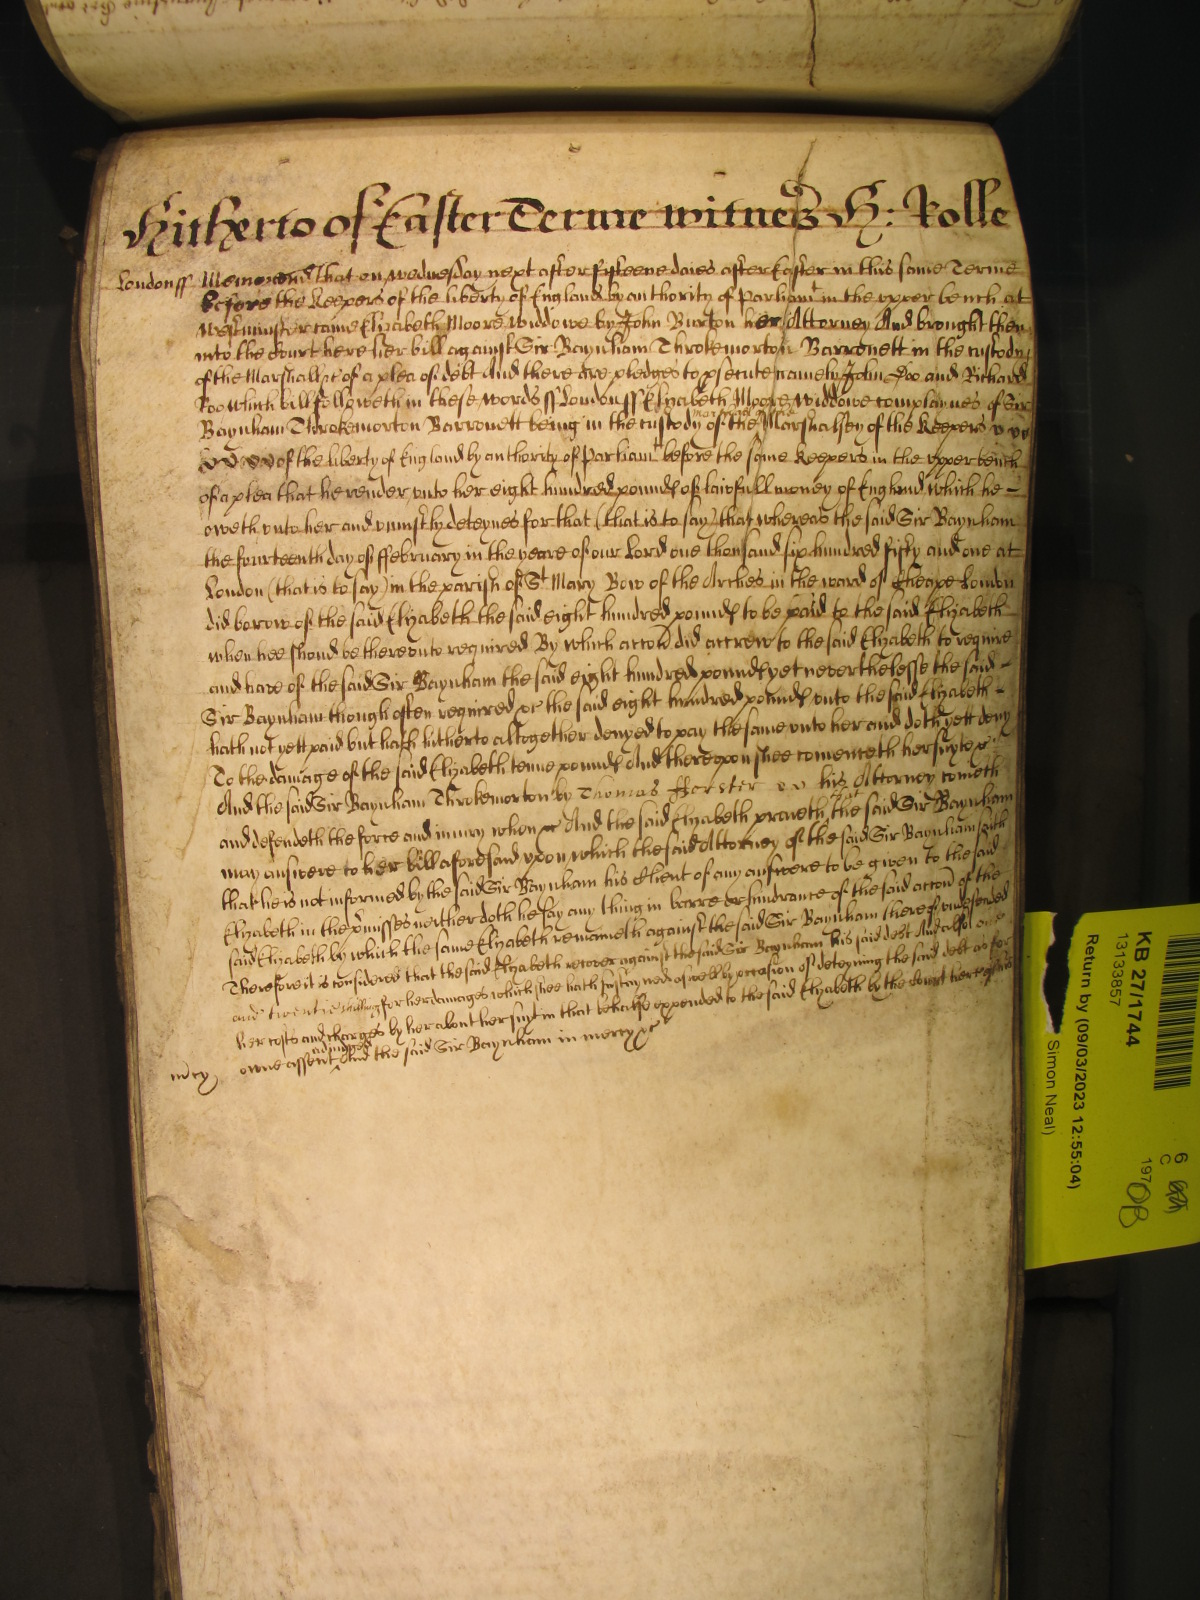 Hitherto of Easter Terme witnes H: Rolle
London ss Memorand that on wednesday next after fifteene daies after Easter in this same Terme
before the Keepers of the liberty of England by authority of Parliamt in the upper bench at
Westminster came Elizabeth Moore widdowe by John Burton her Attorney And brought then
into the Court here her bill against Sir Baynham Throkemorton Barronett in the custody
of the Marshall &c of a plea of debt And there are pledges to psecute namely John Doo and Richard
Roo which bill followeth in these words ss London ss Elizabeth Moore widdowe complaynes of Sir
Baynham Throkemorton Barronett being in the custody of the Marshalsey of the Keepers
of the liberty of England by authority of Parliamt before the same Keepers in the upper bench
of a plea that he render unto her eight hundred pounds of lawfull money of England which he
oweth unto her and uniustly deteynes for that (that is to say) that whereas the said Sir Baynham
the fourteenth day of ffebruary in the yeare of our Lord one thousand six hundred fifty and one at
London (that is to say) in the parish of St Mary Bow of the Arches in the ward of Cheape London
did borow of the said Elizabeth the said eight hundred pounds to be paid to the said Elizabeth
when hee should be thereunto required By which accon did accrew to the said Elizabeth to require
and have of the said Sir Baynham the said eight hundred pounds yet neverthelesse the said
Sir Baynham though often required &c the said eight hundred pounds unto the said Elizabeth
hath not yett paid but hath hitherto altogether denyed to pay the same unto her and doth yett deny
To the damage of the said Elizabeth tenne pounds And thereupon shee comenceth her suyte &c
And the said Sir Baynham Throkemorton by Thomas fforster his Attorney cometh
and defendeth the force and iniury when &c And the said Elizabeth prayeth that the said Sir Baynham
may answere to her bill aforesaid upon which the said Attorney of the said Sir Baynham saith
that he is not informed by the said Sir Baynham his Client of any answere to be given to the said
Elizabeth in the pmisses neither doth he say any thing in barre or hindrance of the said accon of the
said Elizabeth by which the same Elizabeth remaineth against the said Sir Baynham thereof undefended
Therefore it is considered that the said Elizabeth recover against the said Sir Baynham his said debt And also
and twentie shillings for her damages which shee hath sustayned aswell by occasion of deteyning the said debt as for
her costs and charges by her about her suyt in that behalfe expended to the said Elizabeth by the Court here of his
adiudged
owne assent And the said Sir Baynham in mercy &c
mcy
KB 27/1744
13133857
Return by (09/03/2023 12:55:04)
Simon Neal)
6
C
197